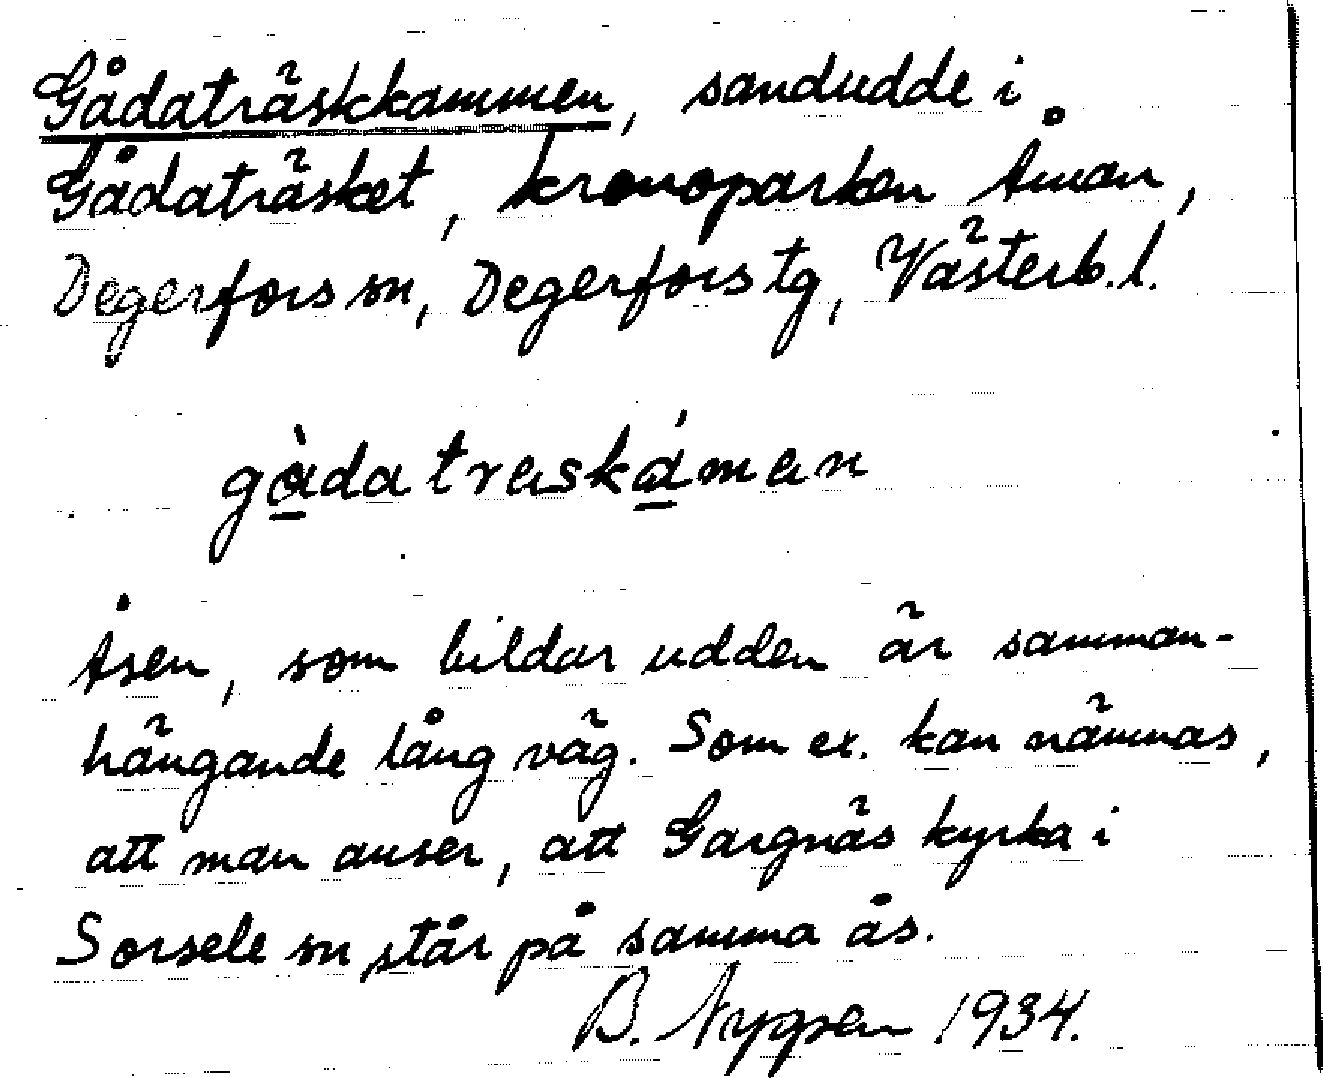 Gådaträskkammen, sandudde i
Gådaträsket, kronoparken Åman,
Degerfors sn, Degerfors tg, Västerb. l.
gàdatraskáman
Åsen, som bildar udden är samman-
hängande lång väg. Som ex. kan nämnas,
att man anser, att Gargnäs kyrka i
Sorsele sn står på samma ås.
B. 1934.